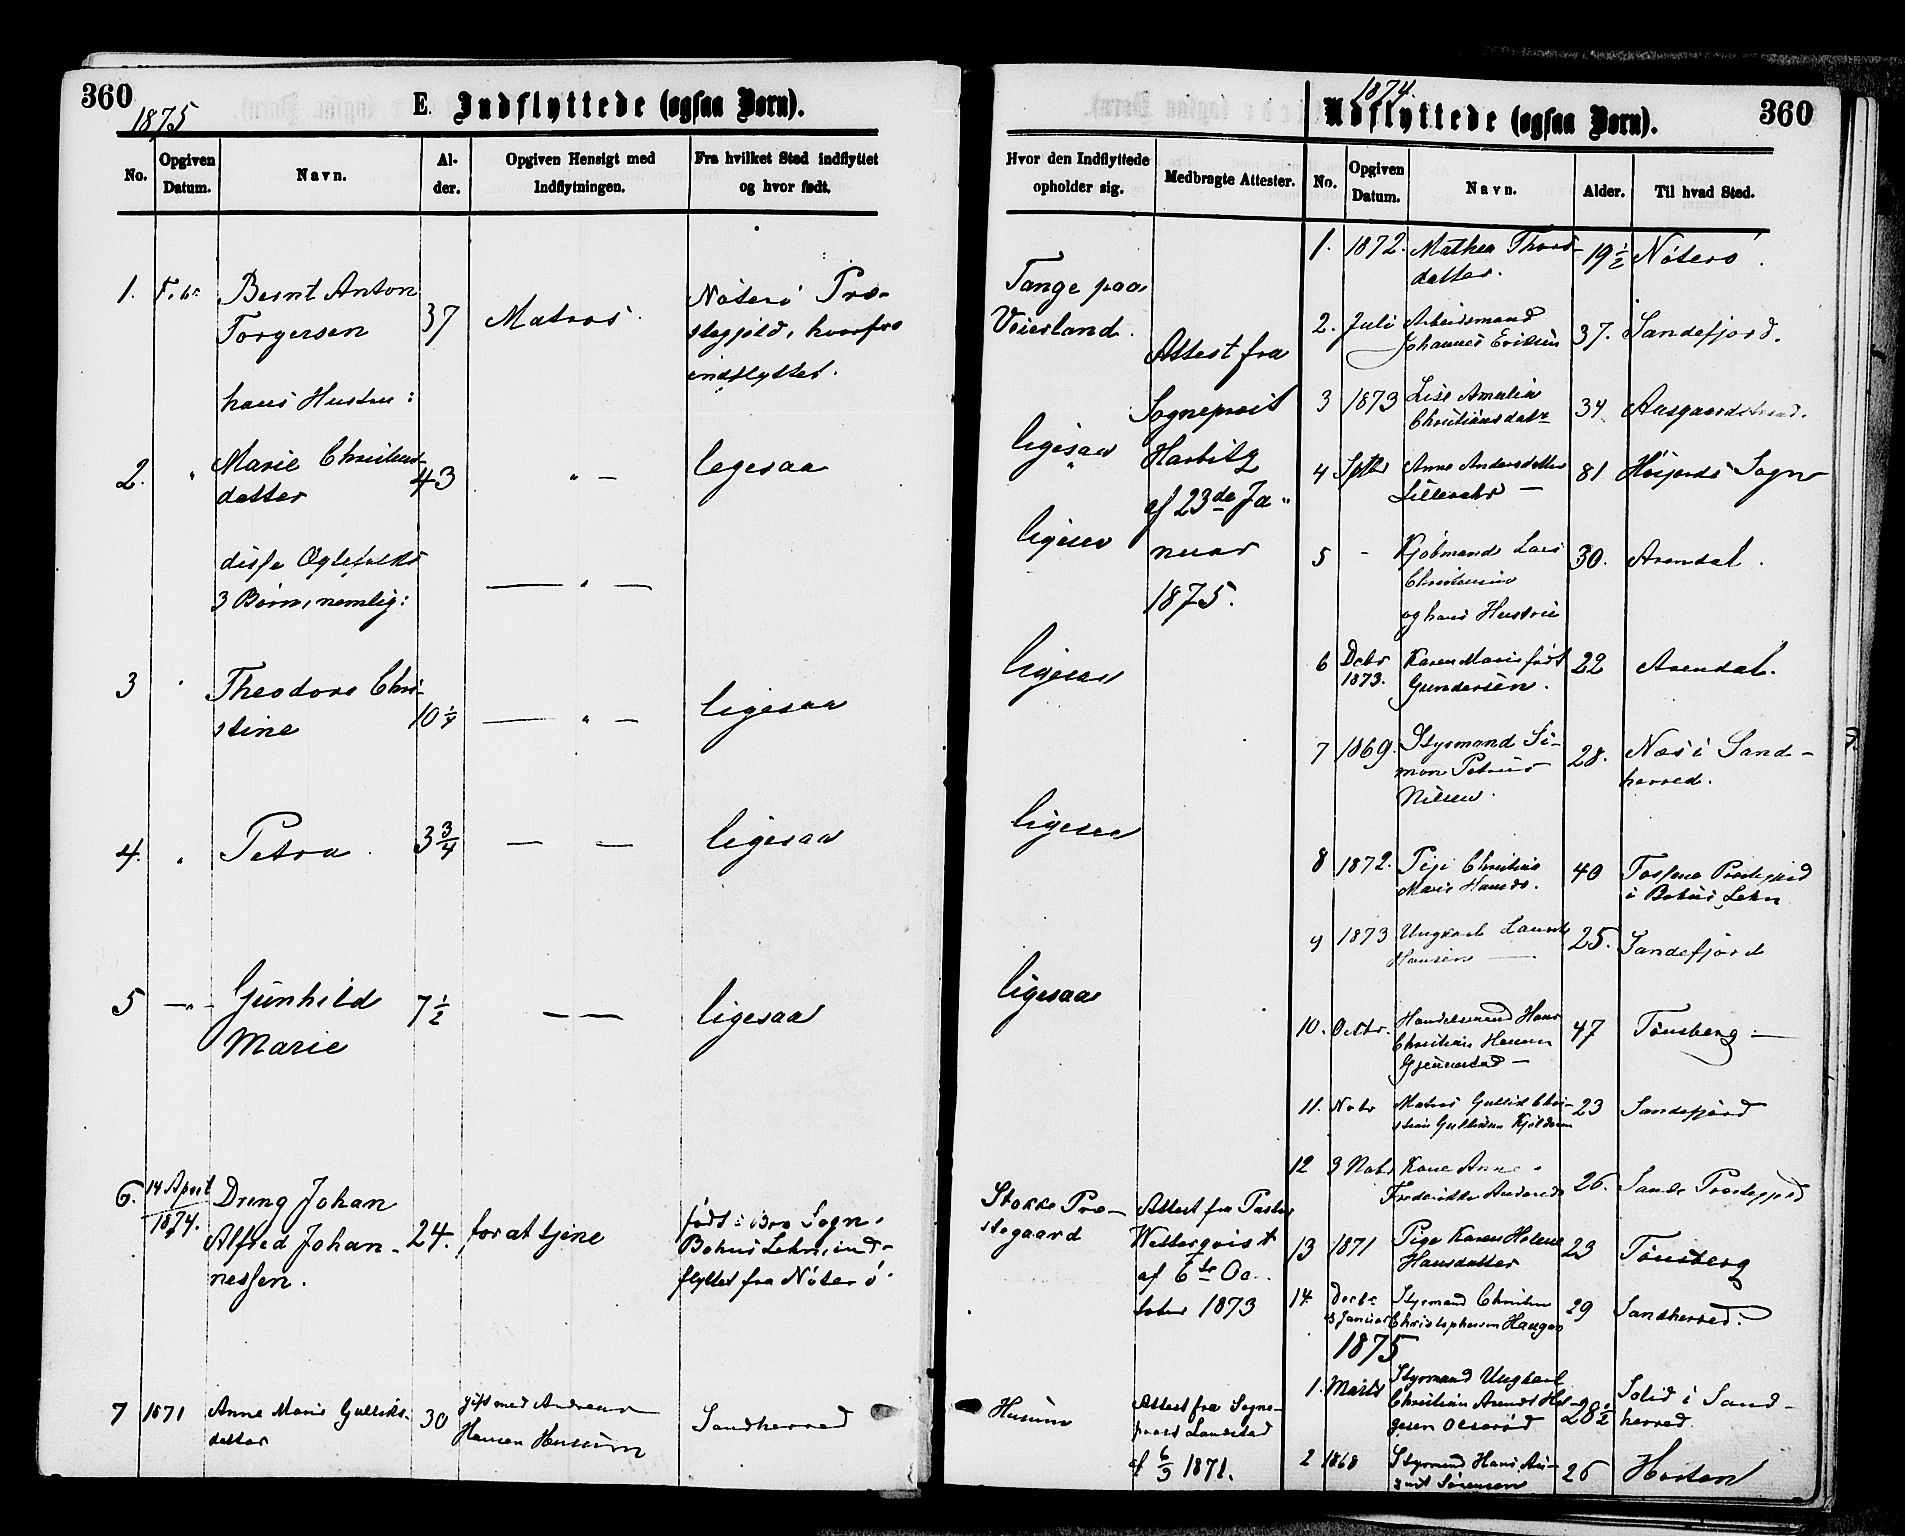 360
1875
E. Indflyttede (ogsaa Børn).
No.
Opgiven
Datum.
Navn.
Al-
der.
Opgiven Hensigt med
Indflytningen.
Fra hvilket Sted indflyttet
og hvor født.
Hvor den Indflyttede
opholder sig.
Medbragte Attester.
1. Febr Bernt Anton
Torgersen
37 Matros.
Nøterø Præ-
stegjeld, hvorfra
indflyttet.
Tange paa
Veierland.
Attest fra
Sogneprest
Harbitz
af 23de Ja-
nuar
1875.
hans Hustru:
2. " Marie Christens-
datter
43 " — legesaa
ligesaa
disse Ægtefolks
3 Børn, nemlig:
— " —
ligesaa
3 " Theodora Chri-
stine
10 1/4 — " — ligesaa
ligesaa
4. " Petra. 3 3/4 — — ligesaa
ligesaa
5 — " — Gunhild
Marie
7 1/2 — — ligesaa
ligesaa
6. 14 April
1874.
Dreng Johan
Alfred Johan-
nessen.
24. for at tjene
født i Bro Sogn,
Bohus Lehn, ind-
flyttet fra Nøterø.
Stokke Præ-
stegaard
Attest fra Pastor
Wetterqvist
af 6te Oc-
tober 1873
7 1871 Anne Marie Gulliks-
datter
30 gift med Andreas
Hansen Husum
Sandherred
Husum
Attest fra Sogne-
prest Landstad
af 6/3 1871.
1874.
Udflyttede (ogsaa Børn).
360
No.
Opgiven
Datum.
Navn.
Alder.
Til hvad Sted.
1. 1872. Mathea Thors-
datter.
19 1/2 Nøterø.
2. Juli Arbeidsmand
Johannes Eriksen
37. Sandefjord.
3 1873 Lise Amalia
Christiansdatr
34 Aasgaardstrand.
4 Septbr Anne Andersdatter
—
81 Høijords Sogn
5 - Kjøbmand Lars
Christensen
30. Arendal.
og hans Hustru
6 Decbr
1873.
Karen Marie født
Gundersen.
22 Arendal.
7 1869. Styrmand Si-
mon Petrus
Nilsen.
28. Næs i Sand-
herred.
8 1872. Pige Christine
Marie Hansdr.
40 Præstegjeld
i Bohus Lehn
9 1873 Ungkarl Laurits
Hansen —
25. Sandefjord
10. Octbr. Handelsmand Hans
Christian Hansen
Gjennestad —
47 Tønsberg —
11. Nobr Matros Gullik Chri-
stian Gulliksen
23 Sandefjord
12 9 Nobr Kone Anne
Fredrikke Andersdr
26. Sande Præstegjeld
13 1871 Pige Karen Helene
Hansdatter
23 Tønsberg
14. Decbr
Januar
Styrmand Christen
Christophersen Haugan
29 Sandherred.
1875
1. Marts Styrmand Ungkarl
Christian Arendt Hel-
gesen Olserød
28 1/2 i Sand-
herred.
2 1868 Styrmand Hans Au-
gust Sørensen
26 Horten